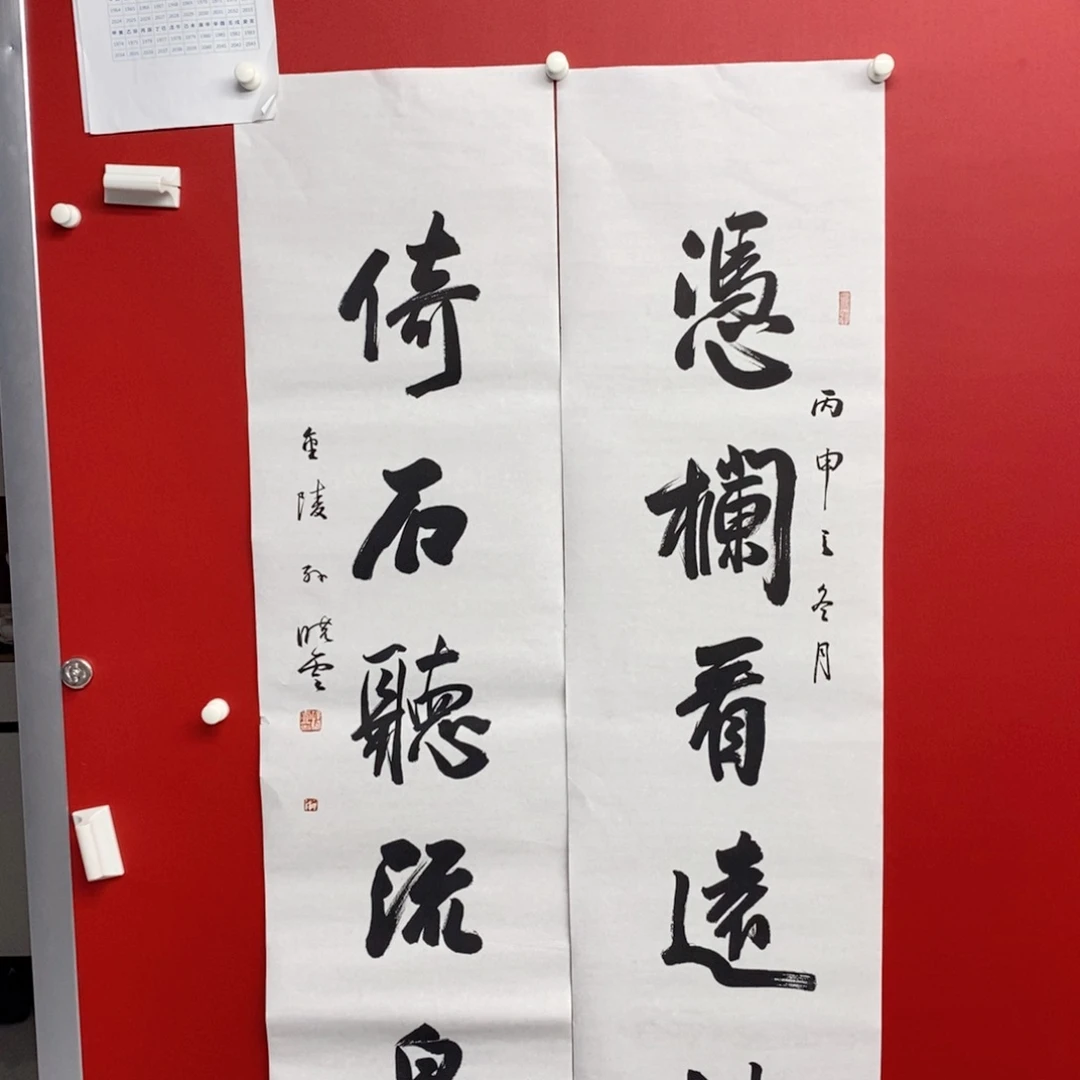 憑欄看遠
丙申之冬月
倚石聽流泉
金陵孙晓雲